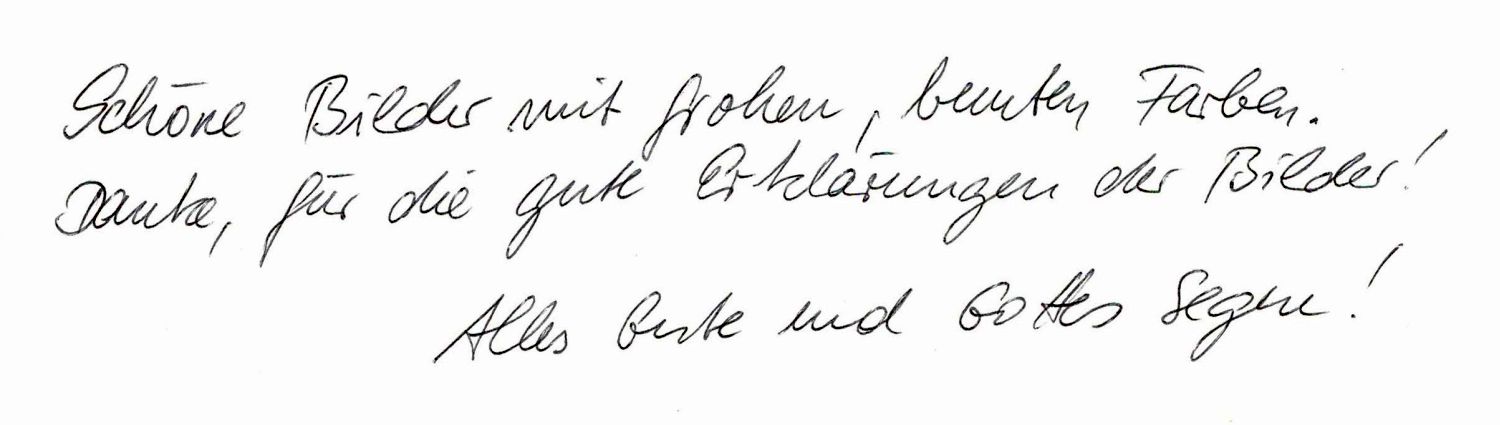 Schöne Bilder mit frohen, bunten Farben.
Danke, für die gute Erklärungen der Bilder!
Alles Gute und Gottes Segen!